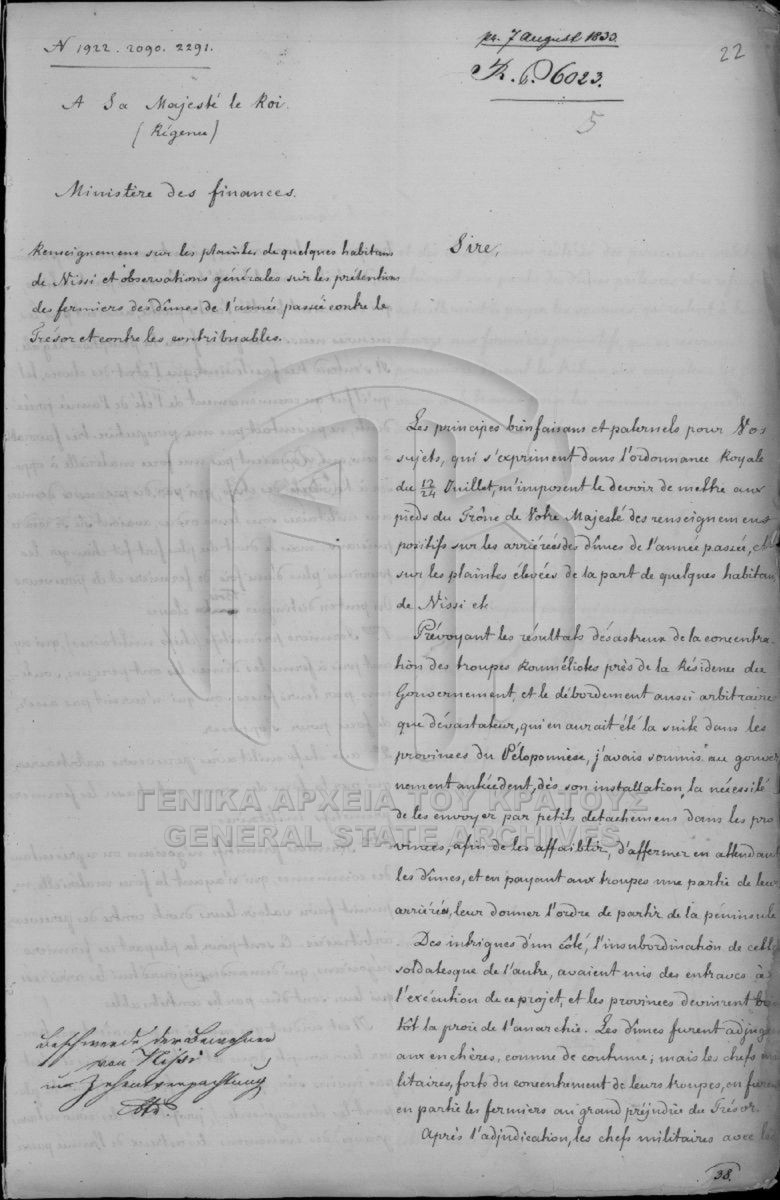 N 1922. 2090. 2291.
pr. 7 August 1833.
22
R. 6. 6023.
5
A Sa Majesté le Roi.
(Régence)
Ministère des finances.
Renseignemens sur les plaintes de quelques habitans
de Nissi et observations générales sur les prétentions
des fermiers des dîmes de l'année passée contre le
Trésor et contre les contribuables.
Sire,
Les principes bienfaisans et paternels pour Vos
sujets, qui s'expriment dans l'ordonnance Royale
du 12/24 Juillet, m'imposent le devoir de mettre aux
pieds du Trône de Votre Majesté des renseignemens
positifs sur les arriérées des dîmes de l'année passée, et
sur les plaintes élevées de la part de quelques habitans
de Nissi etc
Prévoyant les résultats désastreux de la concentra-
tion des troupes Rouméliotes près de la Résidence du
Gouvernement, et le débordement aussi arbitraire
que dévastateur, qui en aurait été la suite dans les
provinces du Péloponnèse, j'avais soumis au gouver
nement antécédent, dès son installation, la nécessité
de les envoyer par petits detachemens dans les pro
vinces, afin de les affaiblir, d'affermer en attendant
les dîmes, et en payant aux troupes une partie de leurs
arriérés, leur donner l'ordre de partir de la péninsule
Des intrigues d'un côté, l'insubordination de cette
soldatesque de l'autre, avaient mis des entraves à
l'exécution de ce projet, et les provinces devinrent bien
tôt la proie de l'anarchie. Les dîmes furent adjugées
aux enchères, comme de coutume; mais les chefs mi
litaires, forts du concentrement de leurs troupes, en furent
en partie les fermiers au grand préjudice du Trésor.
Après l'adjudication, les chefs militaires avec les
Beschwerde der Bewohner
von Nissi
Zehentverpachtung
38.
ΓΕΝΙΚΑ ΑΡΧΕΙΑ ΤΟΥ ΚΡΑΤΟΥΣ
GENERAL STATE ARCHIVES